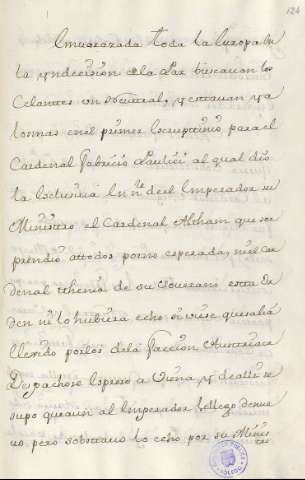 124
Embarazada toda la Europa en
la yndecision de la Paz buscavan los
Celantes un Neutral, y estavan ya
tonnas en el primer Escruptinio para el
Cardenal Fabricio Paulici al qual dio
la Esclusiva en nre del Emperador su
Ministro el Cardenal Altham que so
prendio a ttodos por no esperada, ni el car
denal ttenia de su Soverano esta or
den ni lo hubiera echo si viese que salia
elexido por los de la faccion Austriaca
Despachose Espreso a Viena, y de alli se
supo que aun al Emperador le llego de nue
vo pero sobstuvo lo echo por su Minis
tro